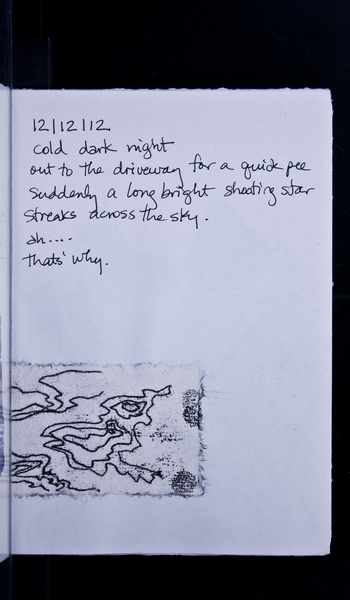 12/12/12
cold dark night
out to the driveway for a quick pee
suddenly a long bright shooting star
streaks across the sky.
ah....
thats' why.